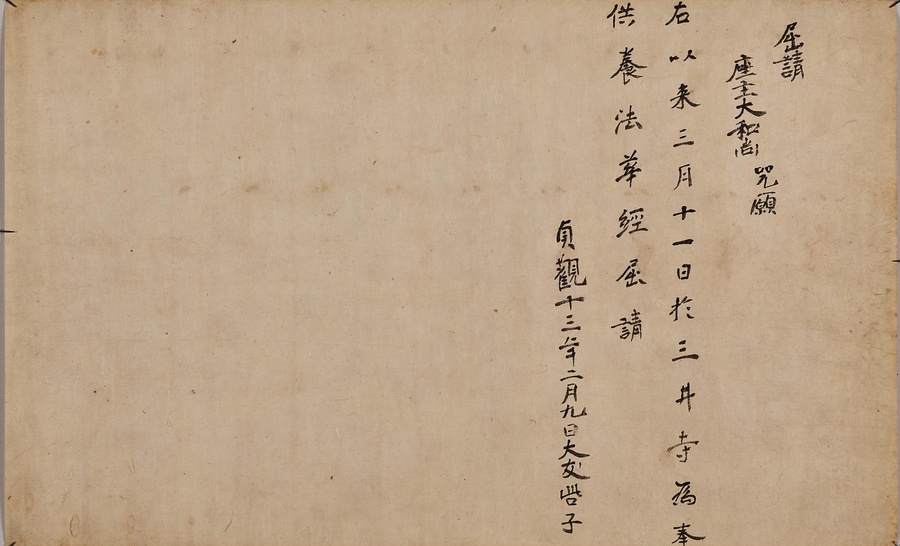 屈請
座主大和尚 咒願
右以来三月十一日於三井寺為奉
供養法華經屈請
貞觀十三年二月九日大友子